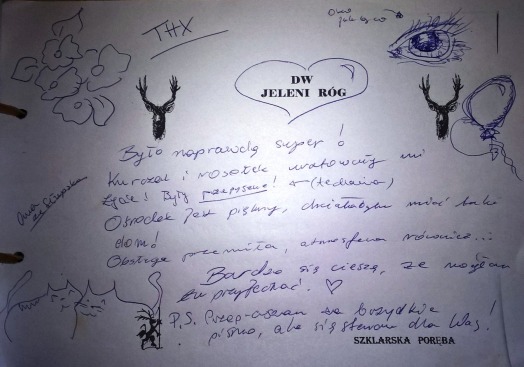 THX
Oko
DW
JELENI RÓG
Było naprawdę super!
Kurczak i rosołek uratowały mi
życie! Były przepyszne!
Ośrodek jest piękny, chciałabym mieć taki
dom!
Obsługa przemiła, atmosfera również...
Bardzo się cieszę, że mogłam
tu przyjechać. ♡
P.S. Przepraszam za brzydkie
pismo, ale się staram dla Was!
SZKLARSKA PORĘBA